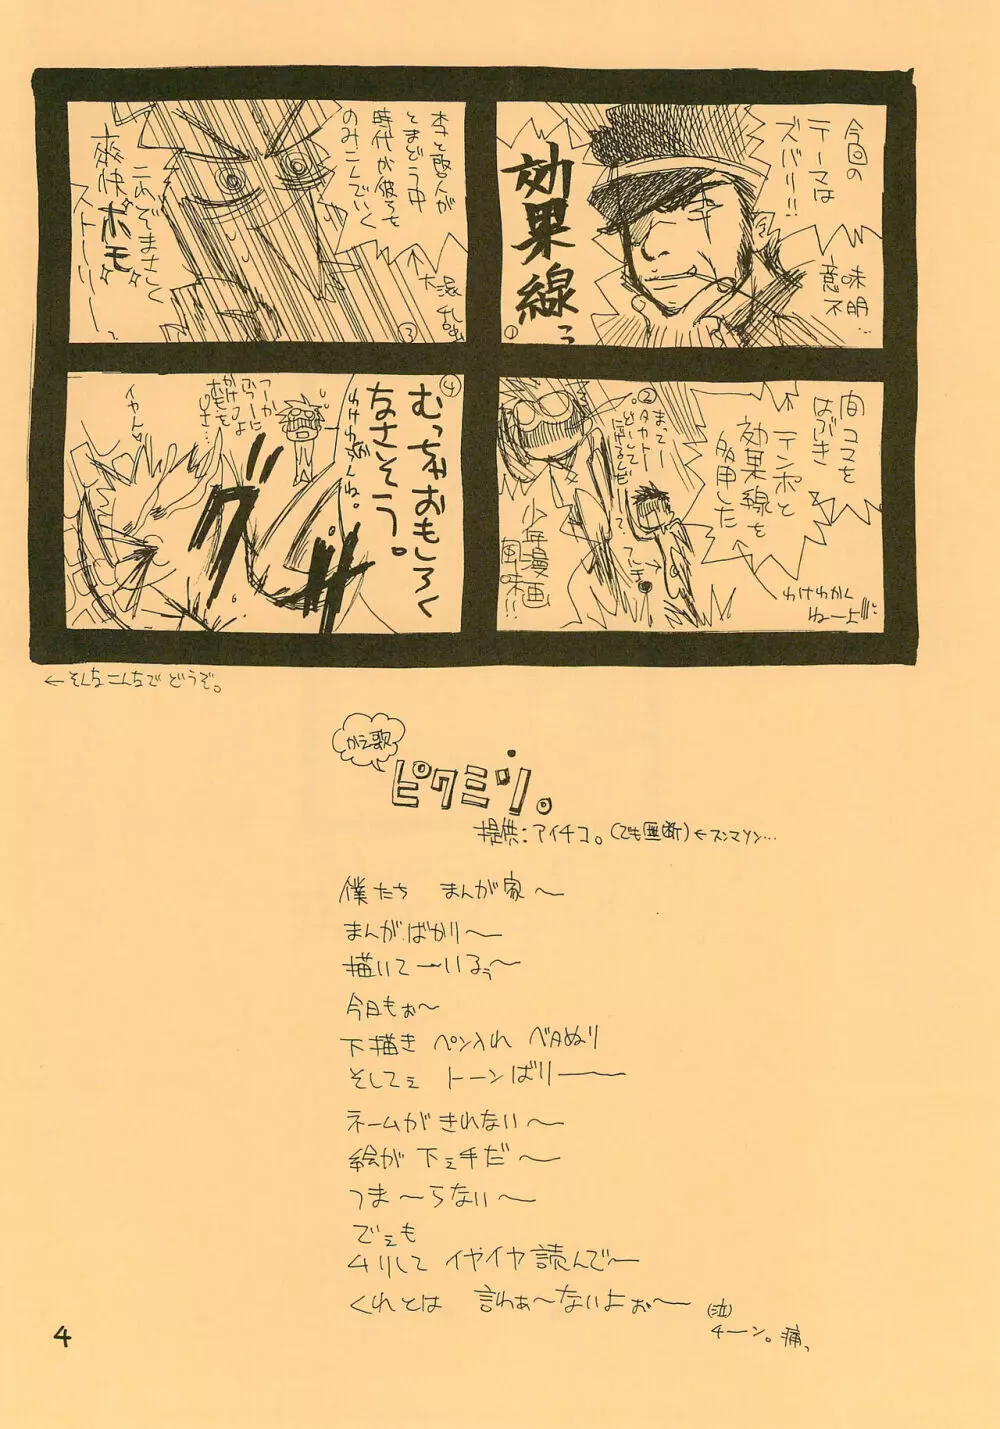 今回の
テーマは
ズバリ!!
効果線っ
意味
不明…
①
間コマを
はぶき
テンポと
効果線を
多用した
②
まってー
タカトー
どーして
にげるんだ
少年漫画
風味!!
わけわかく
ねーよ!!!
本を読んが
とまどう中
時代が彼らを
のみこんでいく
これぞまさしく
爽快ホモ
ストーリーっ
③
④
むっちゃおもしろく
なさそう。
わけわかんね。
つーか
フツーに
かけるよ
おもても
イヤん
グサ
←そんなこんなで どうぞ。
かえ歌
ピクミン。
提供:アイチコ。(でも無断)←スンマソン…
僕たち まんが家〜
まんがばかり〜
描いて〜いるぅ〜
今日もぉ〜
下描き ペン入れ ベタぬり
そしてぇ トーンばりー
ネームがきれない〜
絵が 下ぇ手だ〜
つま〜らない〜
でぇも
ムリして イヤイヤ読んで〜
くれとは 言わぁ〜ないよぉ〜
(泣)
チーン。痛っ
4